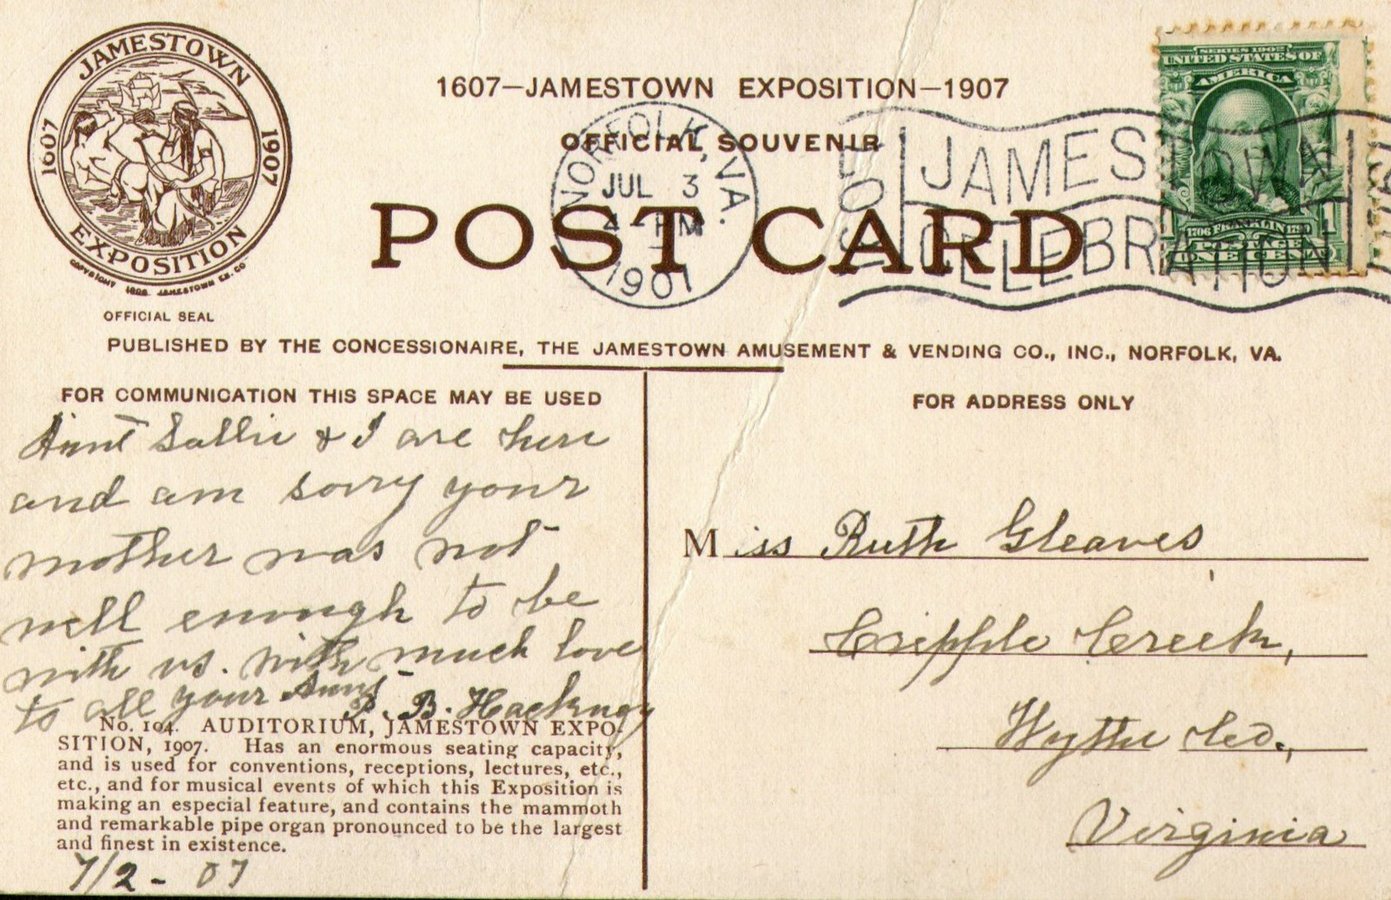 JAMESTOWN
1607 1907
EXPOSITION
COPYRIGHT 1906 JAMESTOWN EX. CO
OFFICIAL SEAL
1607—JAMESTOWN EXPOSITION—1907
OFFICIAL SOUVENIR
POST CARD
NORFOLK, VA.
JUL 3
4-PM
1907
JAMESTOWN
CELEBRATION
SERIES 1902
UNITED STATES OF
AMERICA
1706 FRANKLIN 1790
POSTAGE
1 ONE CENT 1
PUBLISHED BY THE CONCESSIONAIRE, THE JAMESTOWN AMUSEMENT & VENDING CO., INC., NORFOLK, VA.
FOR COMMUNICATION THIS SPACE MAY BE USED
Aunt Sallie & I are here
and am sorry your
mother was not
well enough to be
with us. With much love
to all your Aunt
P. B. Hackney
No. 104. AUDITORIUM, JAMESTOWN EXPO-
SITION, 1907. Has an enormous seating capacity,
and is used for conventions, receptions, lectures, etc.,
etc., and for musical events of which this Exposition is
making an especial feature, and contains the mammoth
and remarkable pipe organ pronounced to be the largest
and finest in existence.
7/2 - 07
FOR ADDRESS ONLY
Miss Ruth Gleaves
Cripple Creek,
Wythe Co.,
Virginia